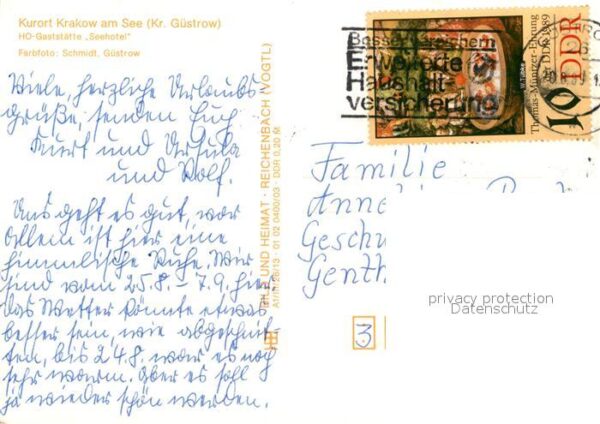 Kurort Krakow am See (Kr. Güstrow)
HO-Gaststätte „Seehotel"
Farbfoto: Schmidt, Güstrow
Viele, herzliche Urlaubs
grüße, senden Euch
Kurt und Ursula
und Rolf.
Uns geht es gut, vor
allem ist hier eine
himmlische Ruhe. Wir
sind vom 25.8. - 7.9. hier
das Wetter könnte etwas
besser sein, wie abgeschnit-
ten, bis 24.8. war es noch
sehr warm. Aber es soll
ja wieder schön werden.
BILD UND HEIMAT · REICHENBACH (VOGTL)
01 02 0400/03 · DDR 0,20 M
Besser
Erweiterte
Haushalt-
versicherung
Thomas-Müntzer-Ehrung
der DDR 1989
W. Tübke
10 DDR
Familie
Anne
Geschw
Genth
privacy protection
Datenschutz
3